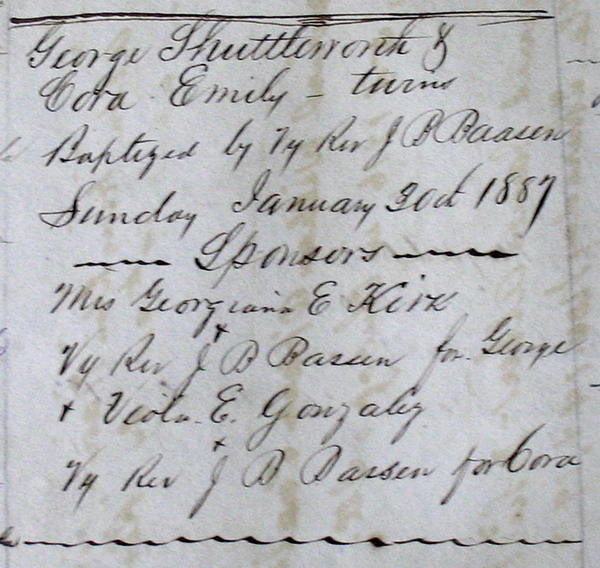 George Shuttleworth &
Cora Emily – twins
Baptized by Vy Rev J B Baasen
Sunday January 30th 1887
Sponsors
Mrs Georgiana E Kirk
+
Vy Rev J B Bassen for George
+ Viola E. Gonzalez
+
Vy Rev J B Bassen for Cora